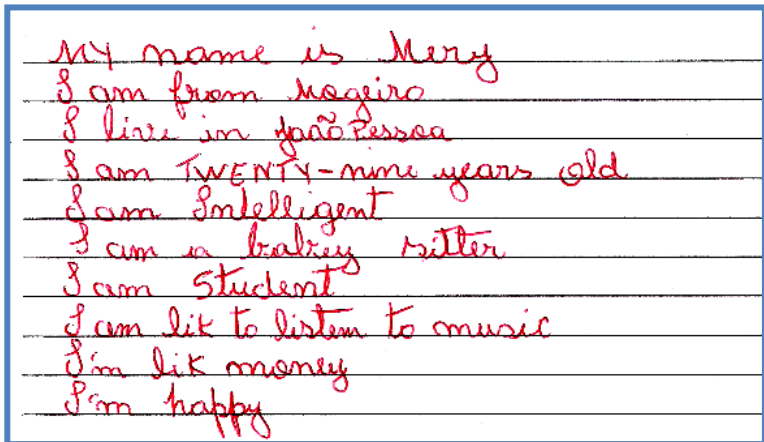 MY name is Mery
I am from Mogeiro
I live in João Pessoa
I am TWENTY-nine years old
I am Intelligent
I am a babey sitter
I am Student
I am lik to listen to music
I'm lik money
I'm happy